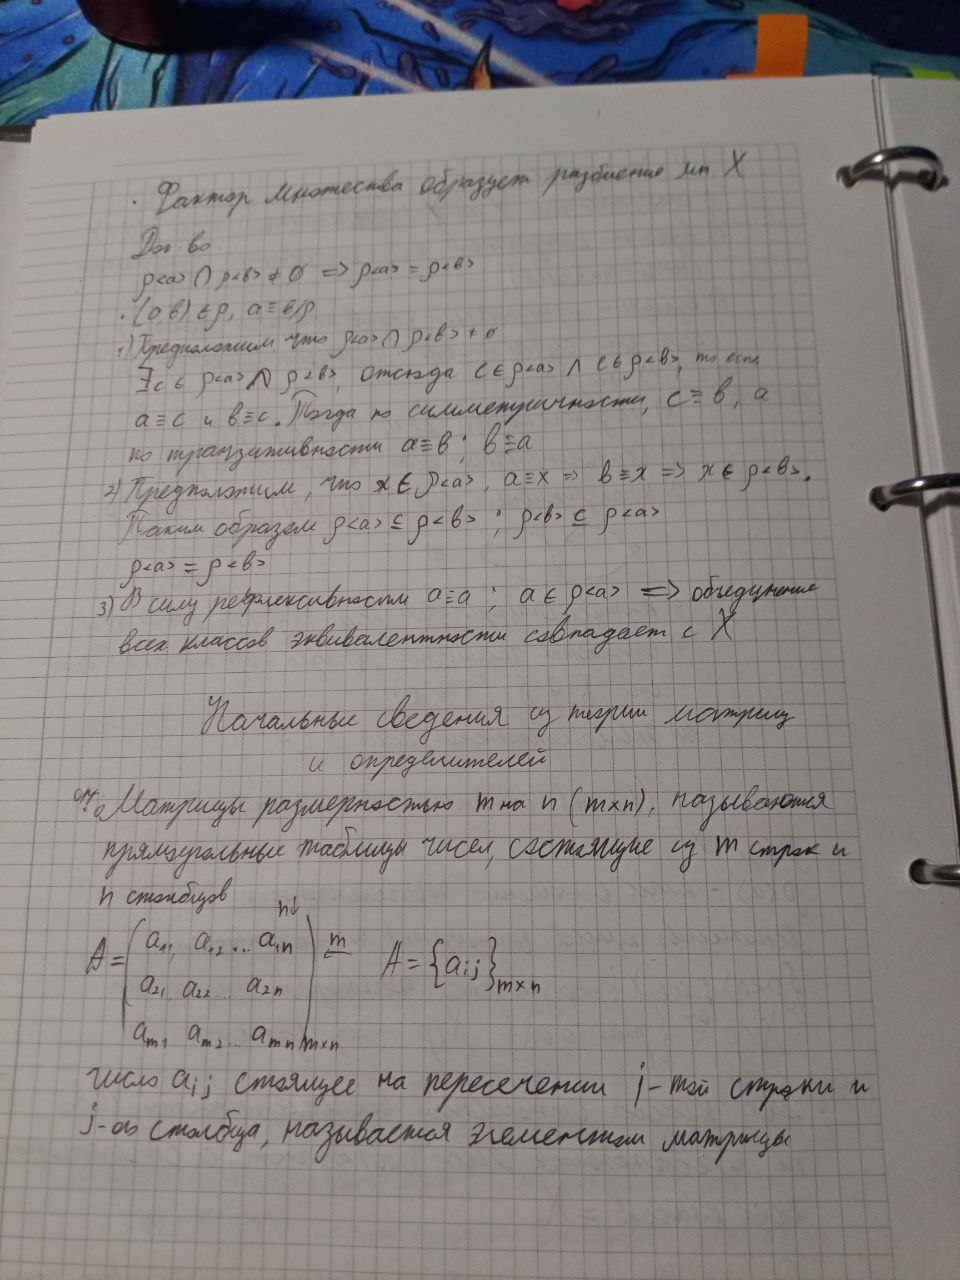 · Фактор множества образует разбиение мн. X
Док во
ρ<a> ∩ ρ<b> ≠ ∅ => ρ<a> = ρ<b>
· (a,b) ∈ ρ, a ≡ b/ρ
1) Предположим что ρ<a> ∩ ρ<b> ≠ ∅
∃c ∈ ρ<a> ∩ ρ<b>, отсюда c ∈ ρ<a> ∧ c ∈ ρ<b>, то есть
a ≡ c и b ≡ c. Тогда по симметричности, c ≡ b, а
по транзитивности a ≡ b ; b ≡ a
2) Предположим, что x ∈ ρ<a>, a ≡ x => b ≡ x => x ∈ ρ<b>.
Таким образом ρ<a> ⊆ ρ<b> ; ρ<b> ⊆ ρ<a>
ρ<a> = ρ<b>
3) В силу рефлексивности a ≡ a ; a ∈ ρ<a> => объединение
всех классов эквивалентности совпадает с X
Начальные сведения из теории матриц
и определителей
Матрицы размерностью m на n (m×n), называются
прямоугольные таблицы чисел, состоящие из m строк и
n столбцов
n↓
A = (a₁₁ a₁₂ ... a₁n) m A = {aᵢⱼ}m×n
a₂₁ a₂₂ .. a₂n
am₁ am₂ .. amn m×n
число aij стоящее на пересечении j-той строки и
j-ого столбца, называется элементом матрицы